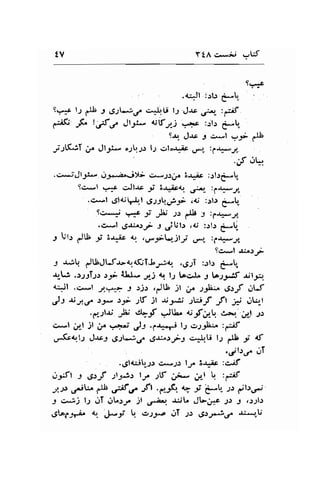 کتاب نخست ۳٤۸ ٤۷
عیب؟
پاسخ داد: البته.
گفتم: یعنی عدل را قابلیت می‌شماری و ظلم را عیب؟
پاسخ داد: عجب زیرکانه سئوال می‌کنی! مگر نگفتم
ظلم خوب است و عدل بد؟
پرسیدم: پس عقیده‌ات را درباره سئوال من آشکارتر
بیان کن.
پاسخ‌داد: عقیدهٔ من‌درست خلاف‌مضمون سئوال‌تست.
پرسیدم: یعنی به‌عقیدهٔ تو عدالت عیب است؟
پاسخ داد: نه، خوش‌باوری ابلهانه‌ای است.
پرسیدم: و ظلم در نظر تو عیب نیست؟
پاسخ داد: نه، دانائی و خردمندی است.
پرسیدم: پس ترازیماخوس، به عقیدهٔ تو ظالم دانا و
خردمند است؟
پاسخ داد: آری، به‌شرط‌آنکه‌به‌حدکمال‌ظالم باشد و
بتواند کشورها و ملت‌ها را به زیر سلطهٔ خود درآورد. شاید
گمان کردی منظور من از ظالم، دزد و جیب‌بر است. البته
اینان نیز اگر گرفتار نشوند از کار خود سود می‌برند ولی
در این بحث باین‌گونه مطالب کوچک نظر نداریم.
گفتم: منظورت را فهمیدم. ولی تعجب من از این است
که تو ظلم را قابلیت وخردمندی می‌شماری وعدل رابه‌عکس
آن می‌دانی.
گفت: عقیدهٔ مرا درست دریافته‌ای.
گفتم: با این سخن کار مرا دشوار کردی و اکنون
نمی‌دانم در پاسخ تو چه بگویم. اگر می‌گفتی ظلم منافعی دربر
دارد، و در عین‌حال مانند بعضی از مردمان آن را زشت و
ناپسند می‌شمردی در آن صورت با توسل به مفهومهای